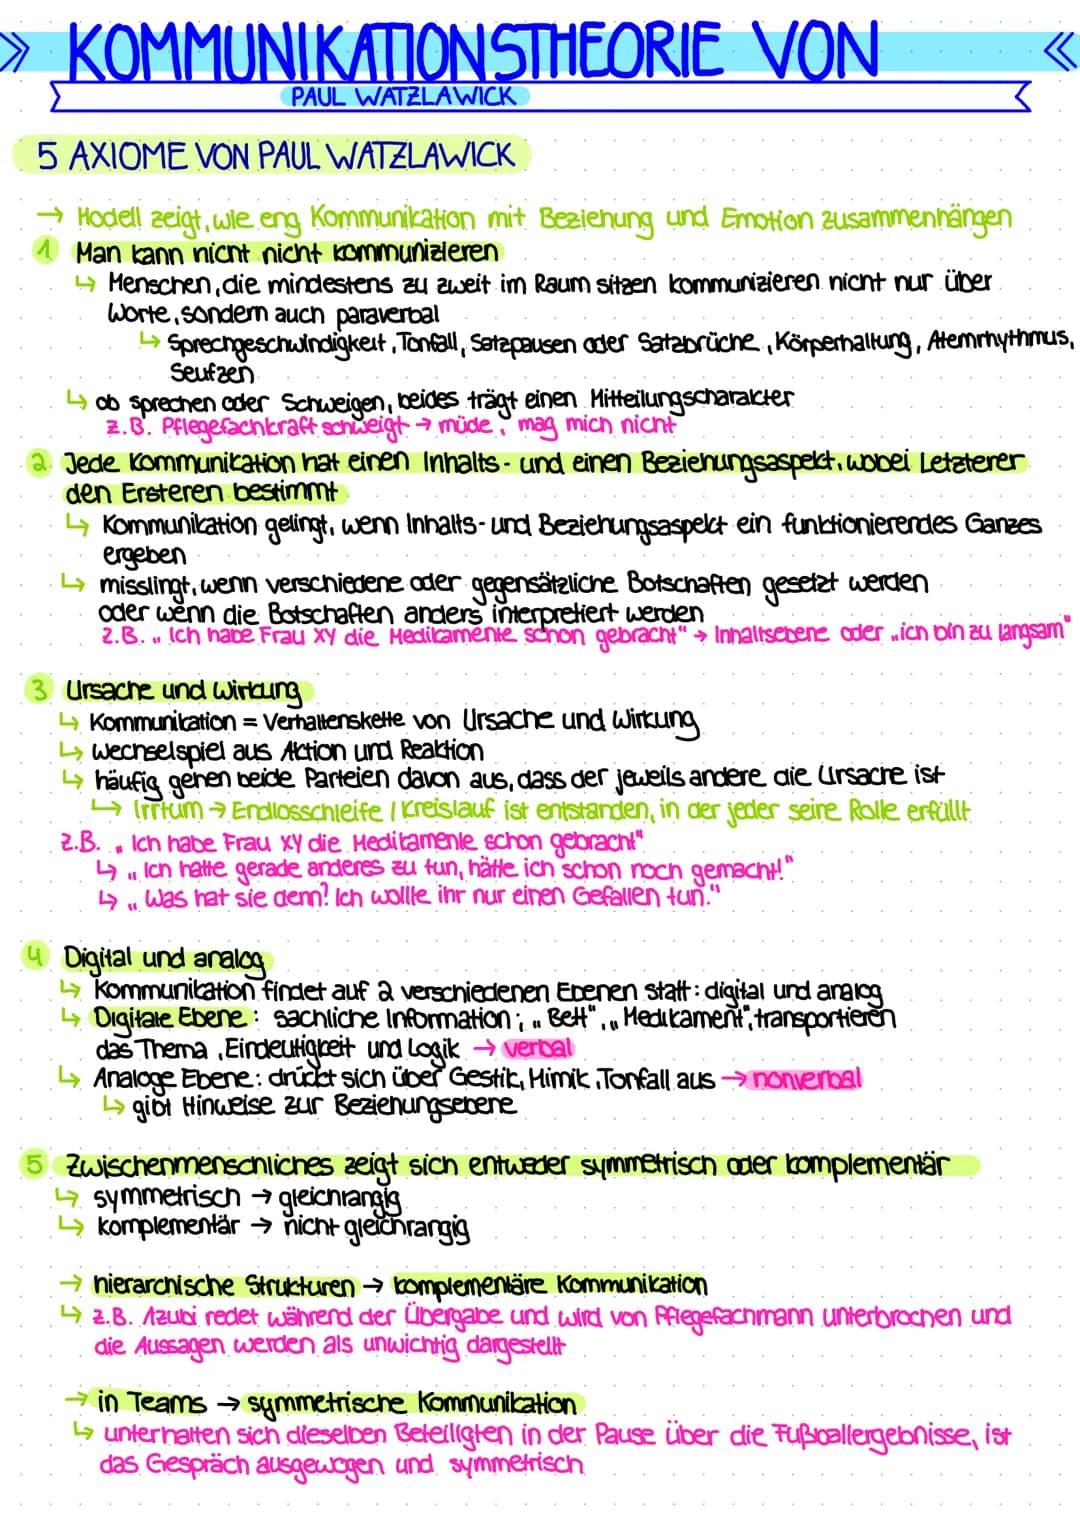 KOMMUNIKATIONSTHEORIE VON
PAUL WATZLAWICK
5 AXIOME VON PAUL WATZLAWICK
→ Modell zeigt, wie eng Kommunikation mit Beziehung und Emotion zusammenhängen
1 Man kann nicht nicht kommunizieren
↳ Menschen, die mindestens zu zweit im Raum sitzen kommunizieren nicht nur über
Worte, sondern auch paraverbal
↳ Sprechgeschwindigkeit, Tonfall, Satzpausen oder Satzbrüche, Körperhaltung, Atemrhythmus,
Seufzen
↳ ob sprechen oder Schweigen, beides trägt einen Mitteilungscharakter
z.B. Pflegefachkraft schweigt → müde, mag mich nicht
2. Jede Kommunikation hat einen Inhalts- und einen Beziehungsaspekt, wobei Letzterer
den Ersteren bestimmt
↳ Kommunikation gelingt, wenn Inhalts- und Beziehungsaspekt ein funktionierendes Ganzes
ergeben
↳ misslingt, wenn verschiedene oder gegensätzliche Botschaften gesetzt werden
oder wenn die Botschaften anders interpretiert werden
z.B. „Ich habe Frau XY die Medikamente schon gebracht" → Inhaltsebene oder „ich bin zu langsam"
3 Ursache und Wirkung
↳ Kommunikation = Verhaltenskette von Ursache und Wirkung
↳ Wechselspiel aus Aktion und Reaktion
↳ häufig gehen beide Parteien davon aus, dass der jeweils andere die Ursache ist
↳ Irrtum → Endlosschleife / Kreislauf ist entstanden, in der jeder seine Rolle erfüllt
z.B. „Ich habe Frau XY die Medikamente schon gebracht"
↳ „Ich hatte gerade anderes zu tun, hätte ich schon noch gemacht!"
↳ „Was hat sie denn? Ich wollte ihr nur einen Gefallen tun."
4 Digital und analog
↳ Kommunikation findet auf 2 verschiedenen Ebenen statt: digital und analog
↳ Digitale Ebene: sachliche Information; „Bett", „Medikament", transportieren
das Thema, Eindeutigkeit und Logik → verbal
↳ Analoge Ebene: drückt sich über Gestik, Mimik, Tonfall aus → nonverbal
↳ gibt Hinweise zur Beziehungsebene
5 Zwischenmenschliches zeigt sich entweder symmetrisch oder komplementär
↳ symmetrisch → gleichrangig
↳ komplementär → nicht gleichrangig
→ hierarchische Strukturen → komplementäre Kommunikation
↳ z.B. Azubi redet während der Übergabe und wird von Pflegefachmann unterbrochen und
die Aussagen werden als unwichtig dargestellt
→ in Teams → symmetrische Kommunikation
↳ unterhalten sich dieselben Beteiligten in der Pause über die Fußballergebnisse, ist
das Gespräch ausgewogen und symmetrisch